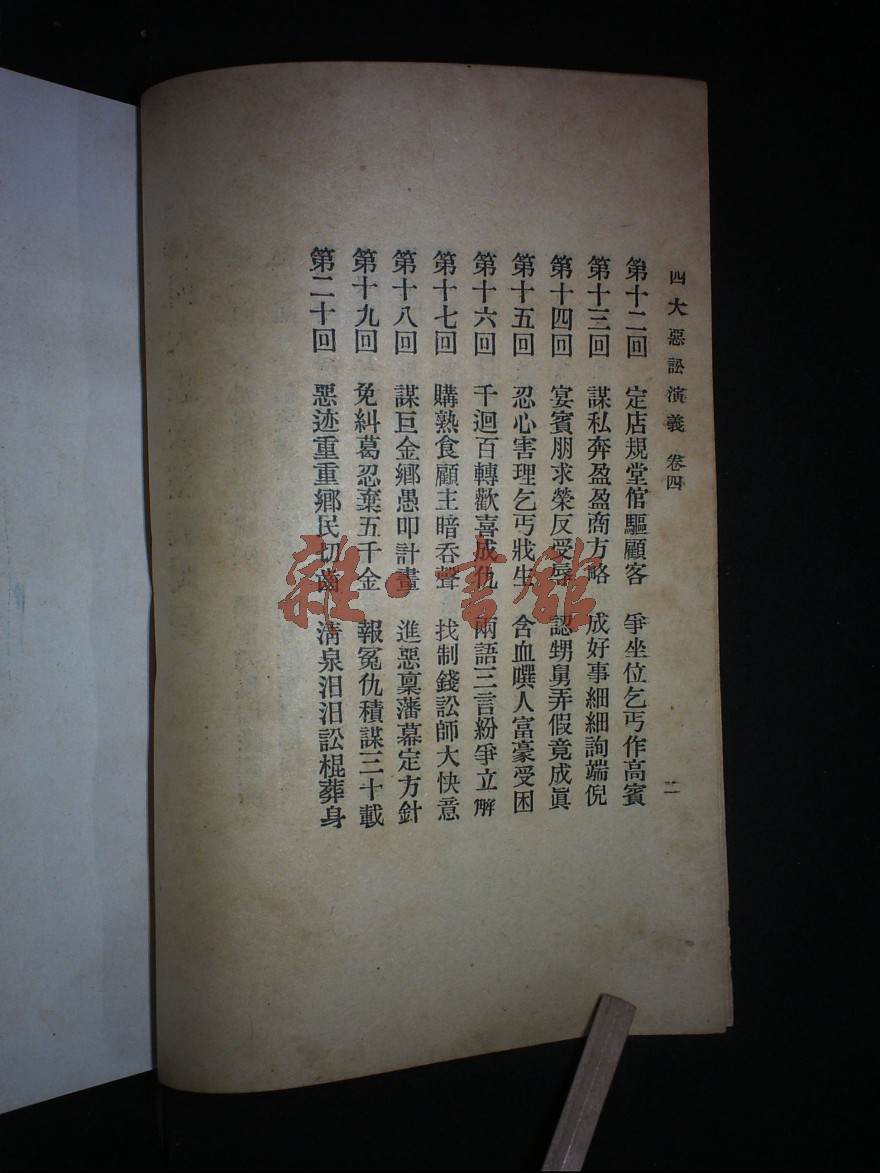 四大惡訟演義 卷四
二
第十二回 定店規堂倌驅顧客 爭坐位乞丐作高賓
第十三回 謀私奔盈盈商方略 成好事細細詢端倪
第十四回 宴賓朋求榮反受辱 認甥舅弄假竟成眞
第十五回 忍心害理乞丐戕生 含血噀人富豪受困
第十六回 千迴百轉歡喜成仇 兩語三言紛爭立解
第十七回 購熟食顧主暗吞聲 找制錢訟師大快意
第十八回 謀巨金鄉愚叩計畫 進惡稟藩幕定方針
第十九回 免糾葛忍棄五千金 報冤仇積謀三十載
第二十回 惡迹重重鄉民切齒 淸泉汩汩訟棍葬身
雜·書館